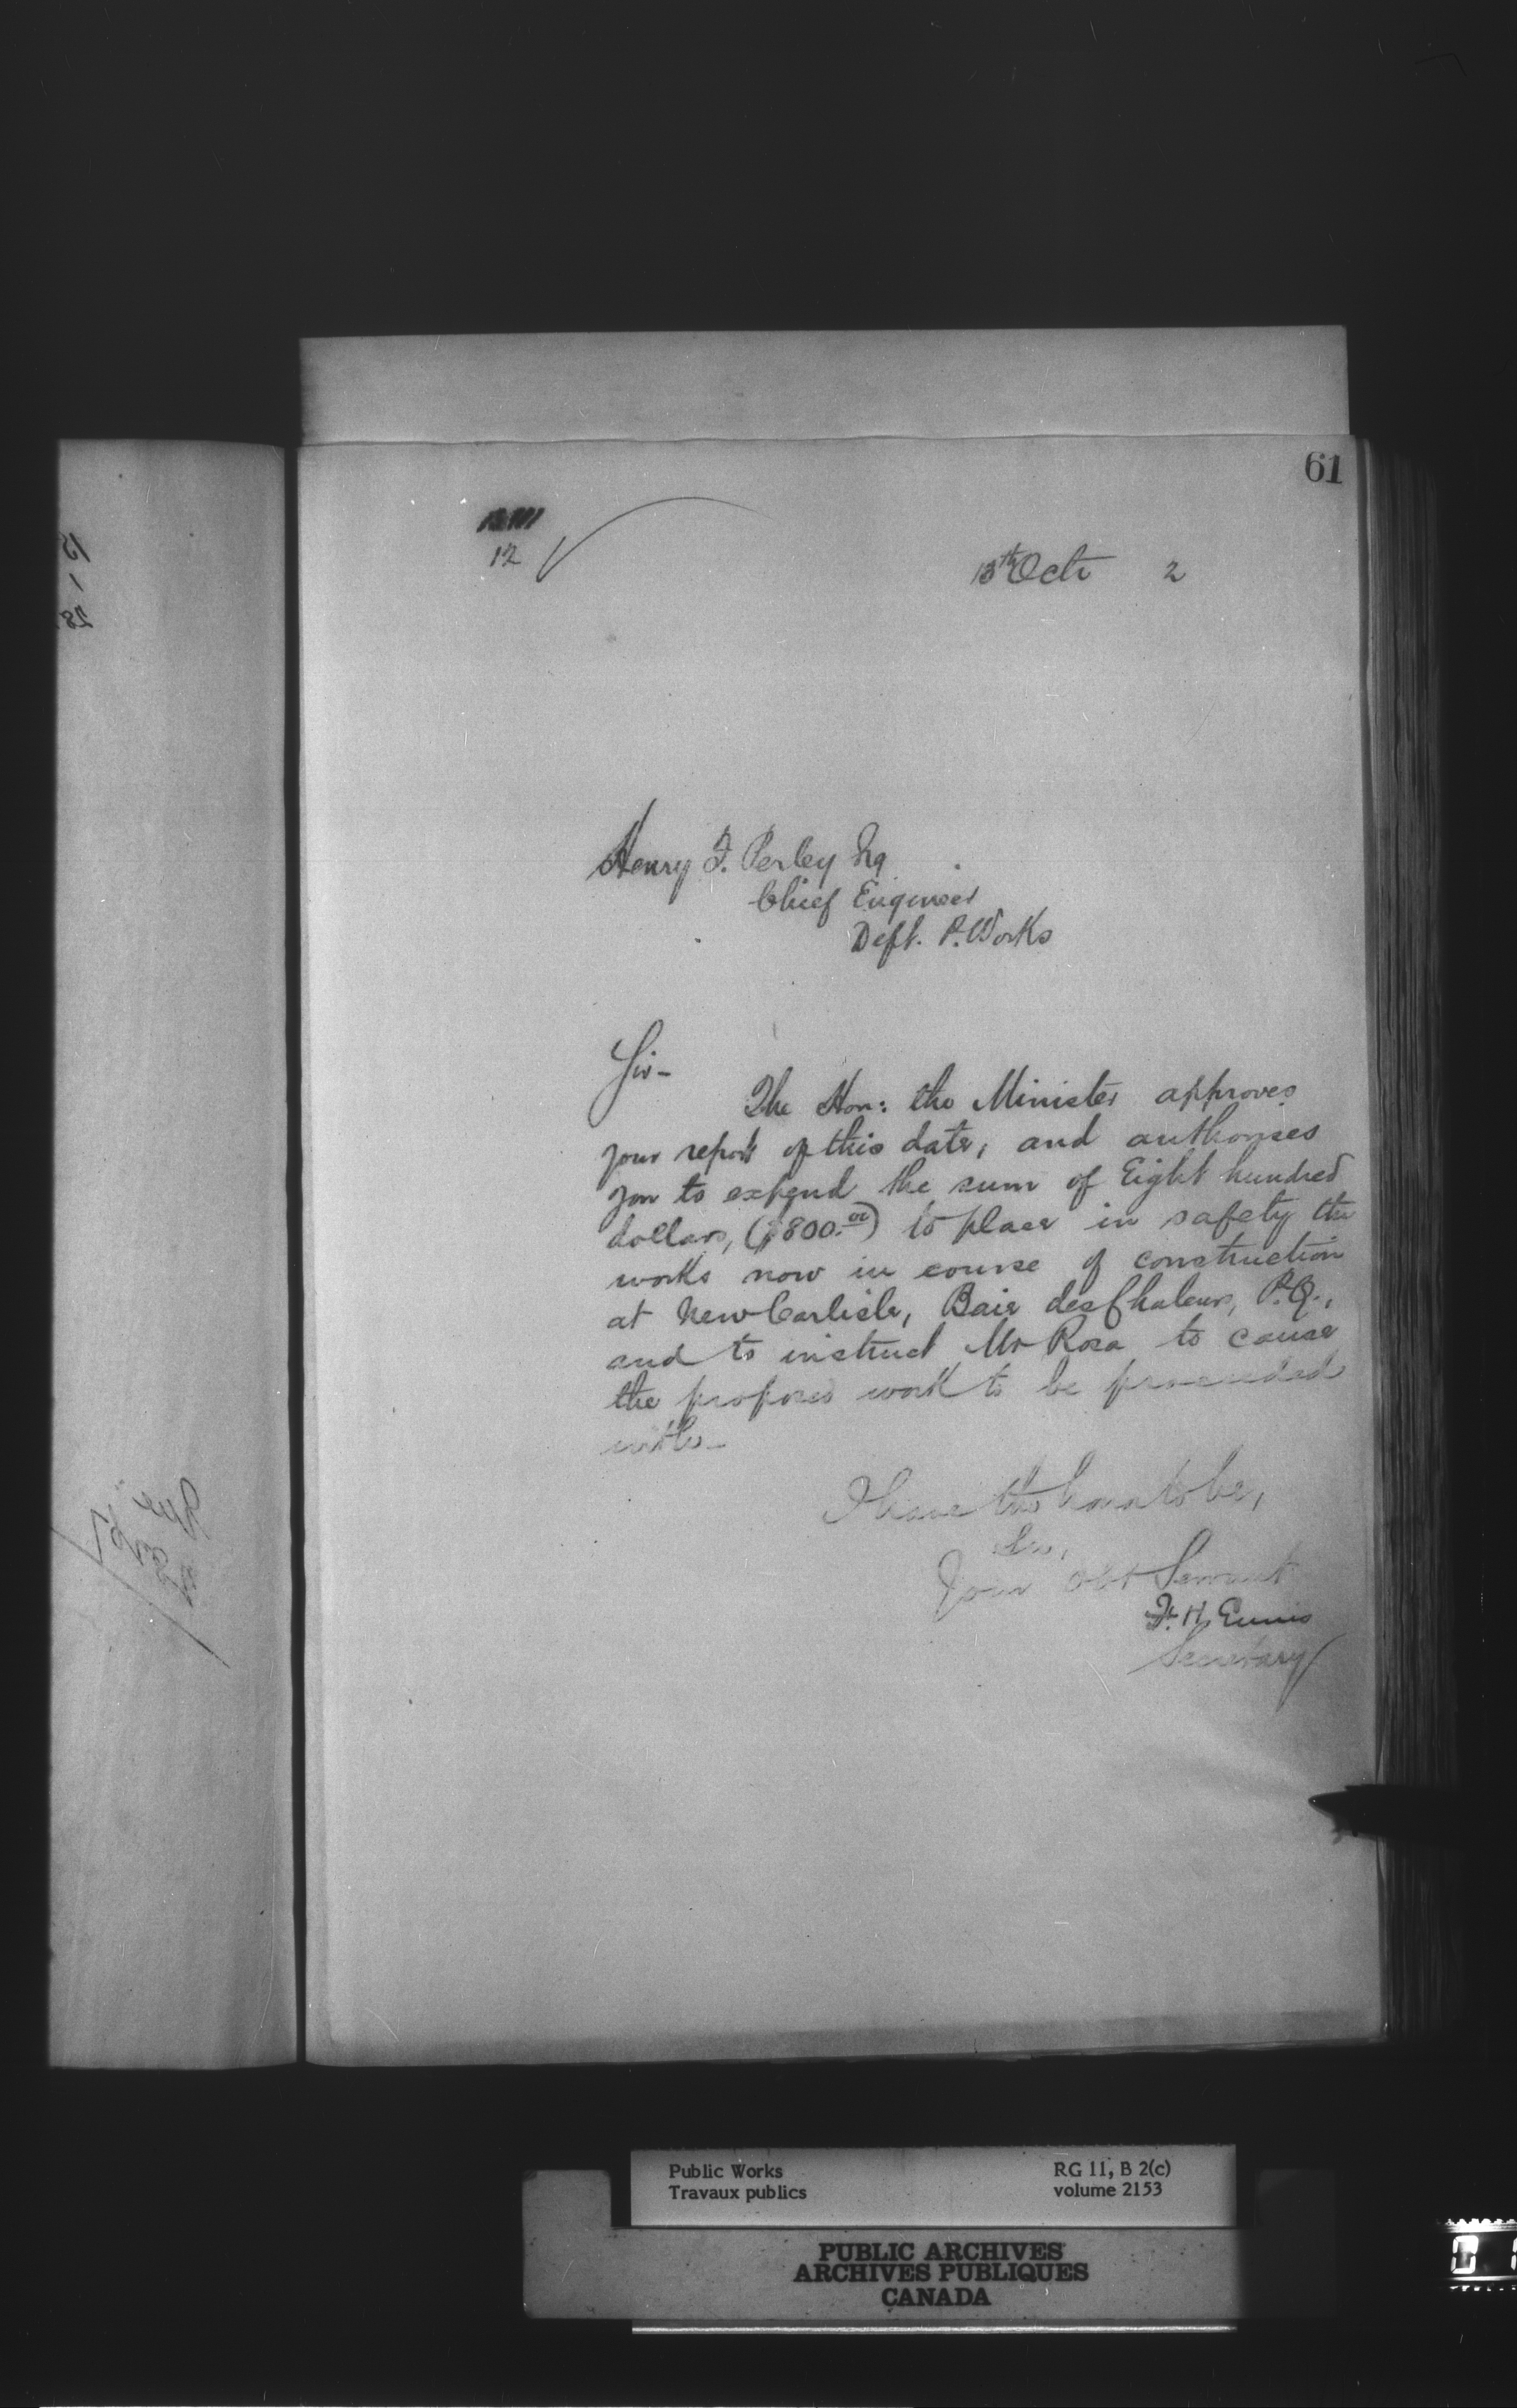 61
12
13th Octr 2
Henry F. Perley Esq
Chief Engineer
Dept. P. Works
Sir-
The Hon: the Minister approves
your report of this date, and authorises
you to expend the sum of Eight hundred
dollars, ($800.00) to place in safety the
works now in course of construction
at New Carlisle, Baie des Chaleurs, P.Q.,
and to instruct Mr Rosa to cause
the proposed work to be proceeded
with-
I have the honor to be,
Sir,
Your Obt Servant
F. H. Ennis
Secretary
Public Works
Travaux publics
RG 11, B 2(c)
volume 2153
PUBLIC ARCHIVES
ARCHIVES PUBLIQUES
CANADA